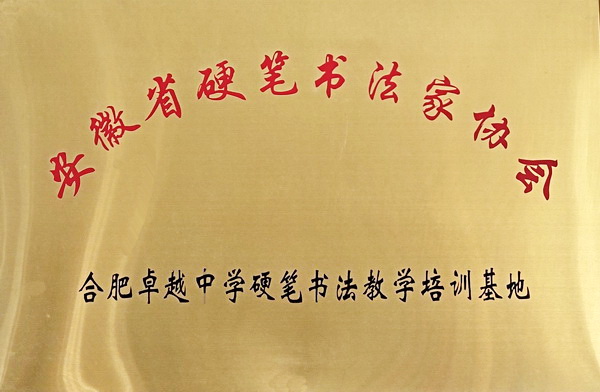 安徽省硬笔书法家协会
合肥卓越中学硬笔书法教学培训基地